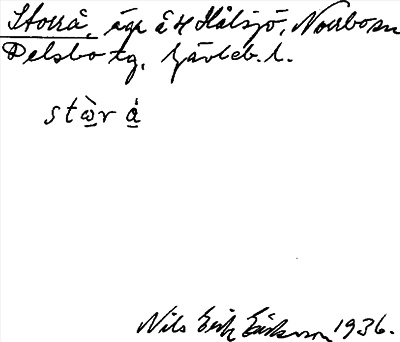 Storrå, äga å Hålsjö, Norrbo sn
Delsbo tg, Gävleb. l.
stὼ̱r á̱
Nils Erik Eriksson 1936.